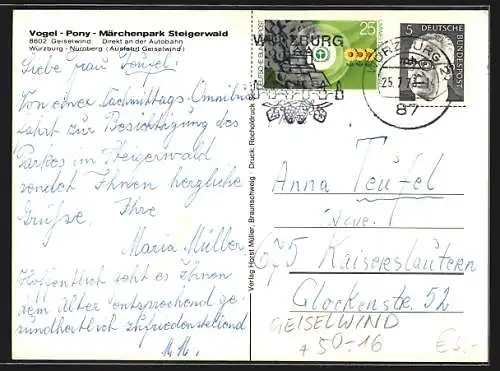 Vogel - Pony - Märchenpark Steigerwald
8602 Geiselwind: Direkt an der Autobahn
Würzburg - Nürnberg (Ausfahrt Geiselwind)
Liebe Frau Teufel!
Von einer Nachmittags-Omnibus
fahrt zur Besichtigung des
Parkes im Steigerwald
sendet Ihnen herzliche
Grüße. Ihre
Maria Müller
Hoffentlich geht es Ihnen
dem Alter entsprechend ge-
sundheitlich zufriedenstellend
M. M.
Verlag Horst Müller, Braunschweig Druck:
WÜRZBURG
25
5
DEUTSCHE BUNDESPOST
WÜRZBURG
25.7.73
87
Anna Teufel
675 Kaiserslautern
Glockenstr. 52
GEISELWIND
50-16
€5.-